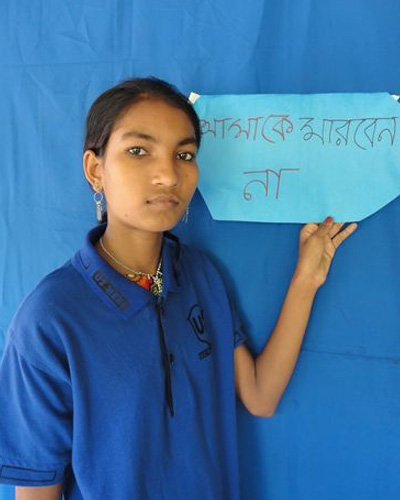 আমাকে মারবেন
না